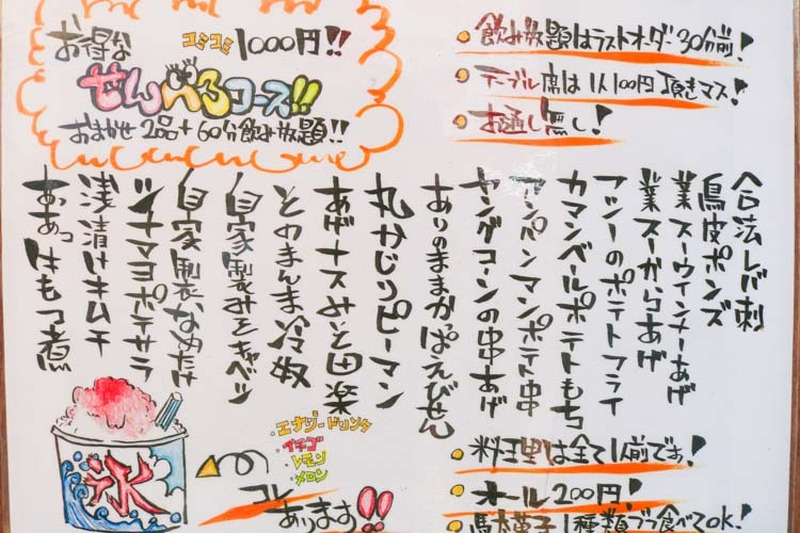 お得な コミコミ 1000円!!
せんべろコース!!
おまかせ2品+60分飲み放題!!
飲み放題はラストオーダー30分前!
テーブル席は1人100円頂きマス!
お通し無し!
合法レバ刺
鳥皮ポンズ
業スーウインナーあげ
業スーからあげ
アツシーのポテトフライ
カマンベールポテトもち
アンパンマンポテト串
ヤングコーンの串あげ
ありのままかっぱえびせん
丸かじりピーマン
あげナスみそ田楽
とのまんま冷奴
自家製みそキャベツ
自家製なめたけ
ツナマヨポテサラ
浅漬けキムチ
おあっはもつ煮
料理は全て1人前です!
オール200円!
駄菓子1種類づつ食べてOK!
エナジードリンク
イチゴ
レモン
メロン
コレあります!!
氷